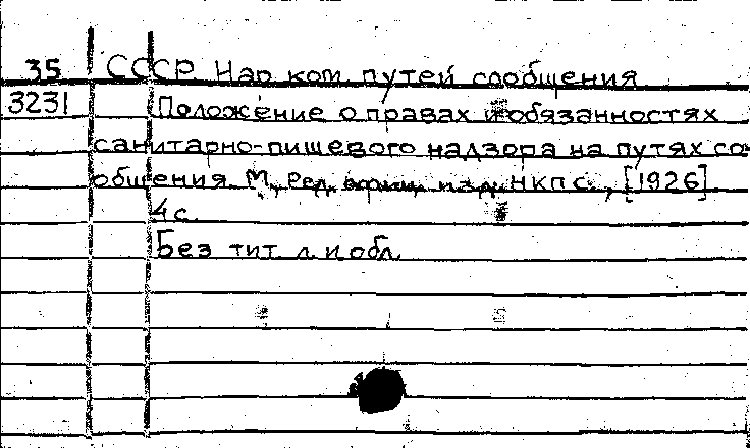 35 СССР Нар. ком. путей сообщения
3231 Положение о правах и обязанностях
санитарно-пищевого надзора на путях со-
общения. М., Ред. изд. НКПС., [1926].
4 с.
Без тит. л. и обл.